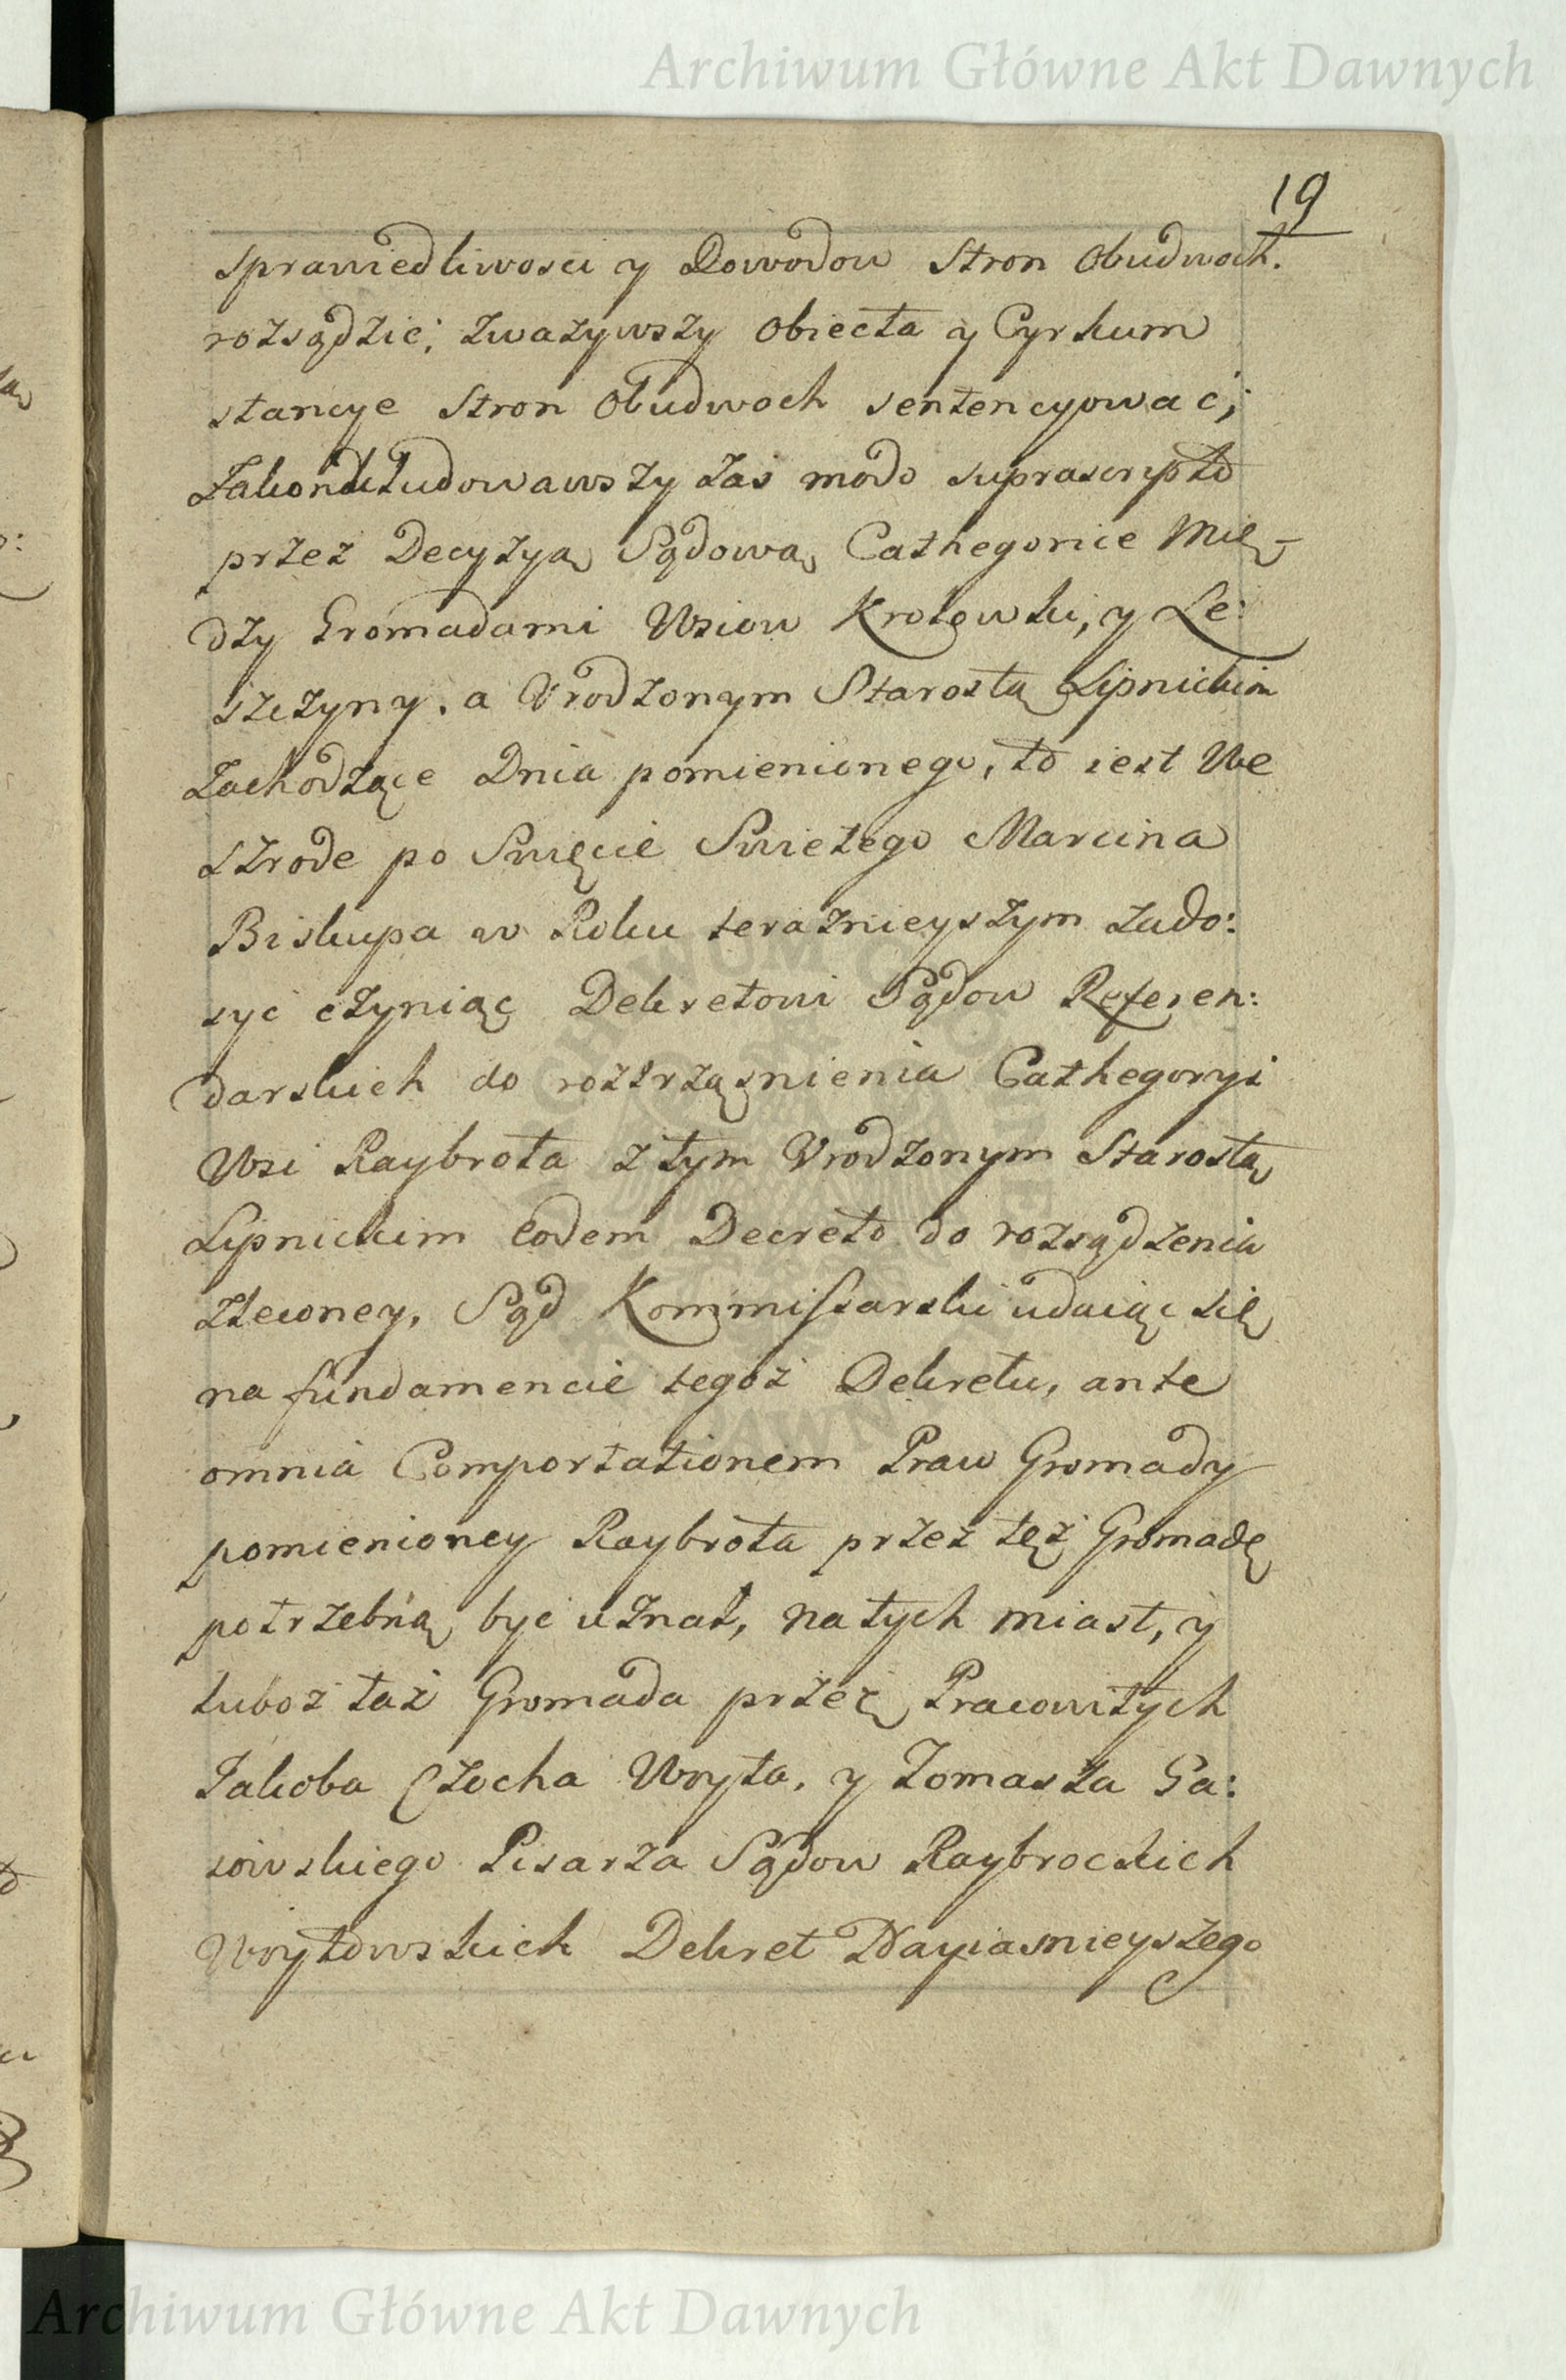 Archiwum Główne Akt Dawnych
19
sprawiedliwosci y Dowodow Stron Obudwoch.
rozsądzić, zwazywszy Obiecta y Cyrkum
stancye Stron Obudwoch sentencyować;
Zakonkludowawszy zas modo suprascripto
przez Decyzyą Sądową Cathegorice Mię-
dzy Gromadami Wsiow Krolowki, y Le:
szczyny. a Urodzonym Starostą Lipnickim
Zachodzące Dnia pomienionego, to iest We
szrode po Swięcie Swietego Marcina
Biskupa w Roku teraznieyszym zado:
syć czyniąc Dekretowi Sądow Referen:
darskich do roztrząsnienia Cathegoryi
Wsi Raybrota z tym Urodzonym Starostą
Lipnickim eodem Decreto do rozsądzenia
zleconey, Sąd Kommissarski udaiąc się
na fundamencie tegoż Dekretu, ante
omnia Comportationem Praw Gromady
pomienioney Raybrota przez tęż Gromadę
potrzebną być uznał, natych miast, y
luboż taż Gromada przez Pracowitych
Jakoba Czocha Woyta, y Tomasza Ga:
sowskiego Pisarza Sądow Raybrockich
Woytowskich Dekret Nayiasnieyszego
Archiwum Główne Akt Dawnych